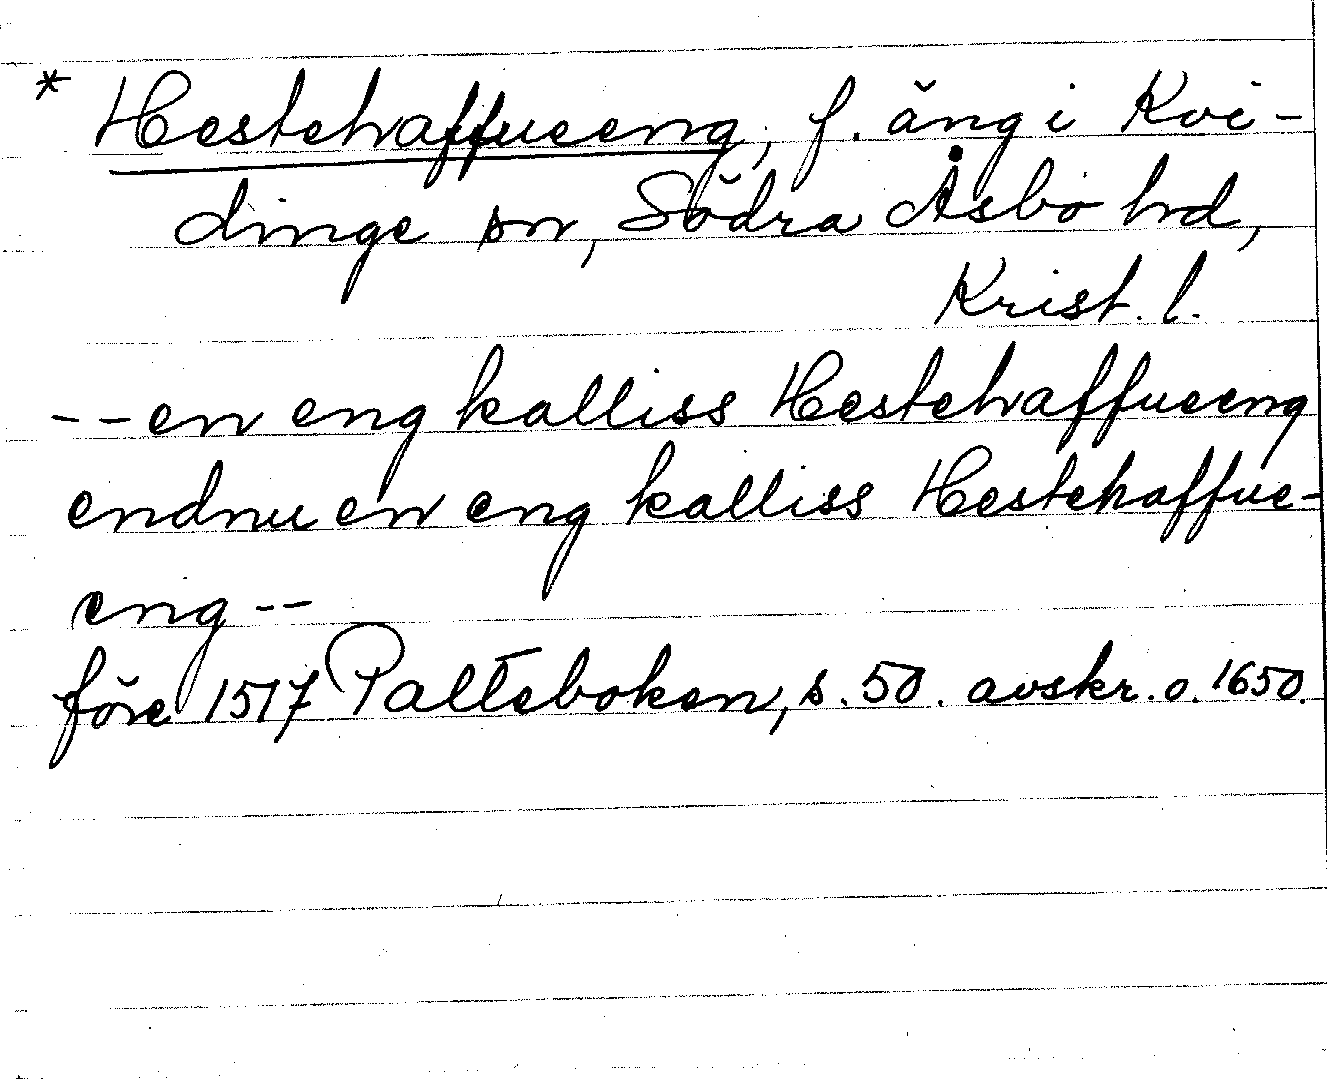 * Hestehaffueeng, f. äng i Kvi-
dinge sn, Södra Åsbo hd,
Krist. l.
-- en eng kalliss Hestehaffueeng
endnu en eng kalliss Hestehaffue-
eng --
före 1517 Palteboken, s. 50. avskr. o. 1650.